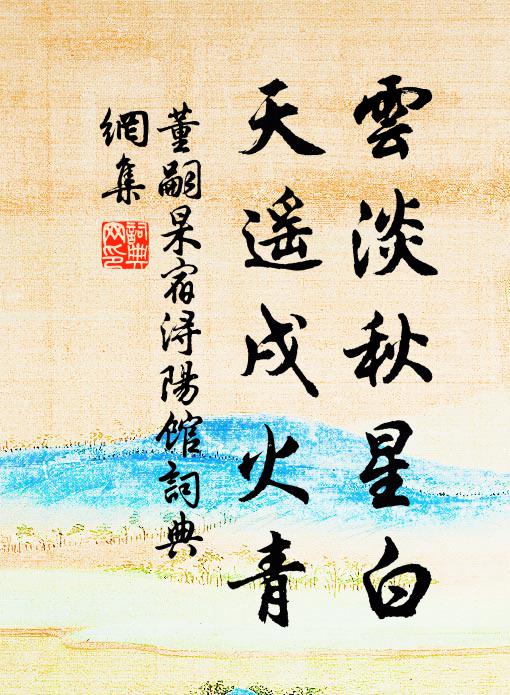 雲淡秋星白
天遥戍火青
董嗣杲宿潯陽館詞典
網集
詞典
网印